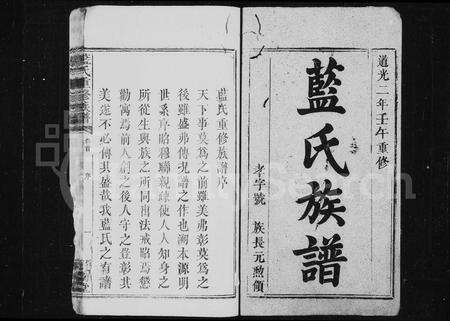 道光二年壬午重修
藍氏族譜
孝字號 族長元煦領
藍氏重修族譜序
天下事莫爲之前雖美弗彰莫爲之
後雖盛弗傳況譜之作也溯本源明
世系序昭穆聯親疎使人人知身之
所從生與族之所同出法戒略焉懲
勸寓焉前人創之後人守之彰其
美不必傳其盛哉我藍氏之有譜
卷首 序